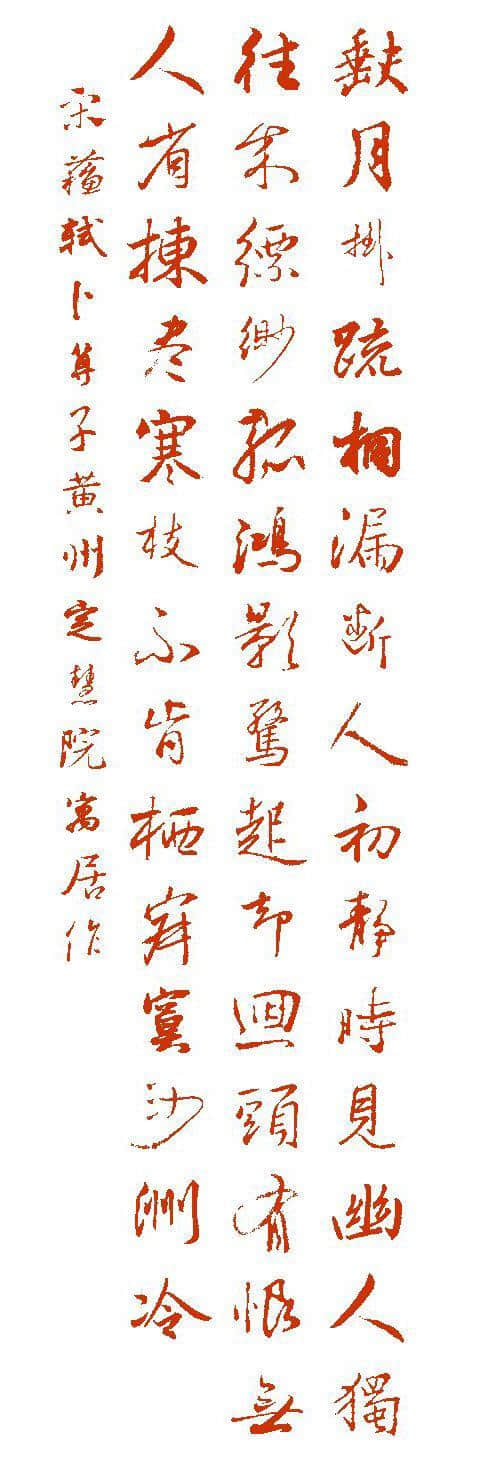 缺月掛疏桐漏断人初靜時見幽人獨
往来縹緲孤鴻影驚起却迴頭有恨無
人省揀尽寒枝不肯栖寂寞沙洲冷
宋蘇軾卜算子黄州定慧院寓居作